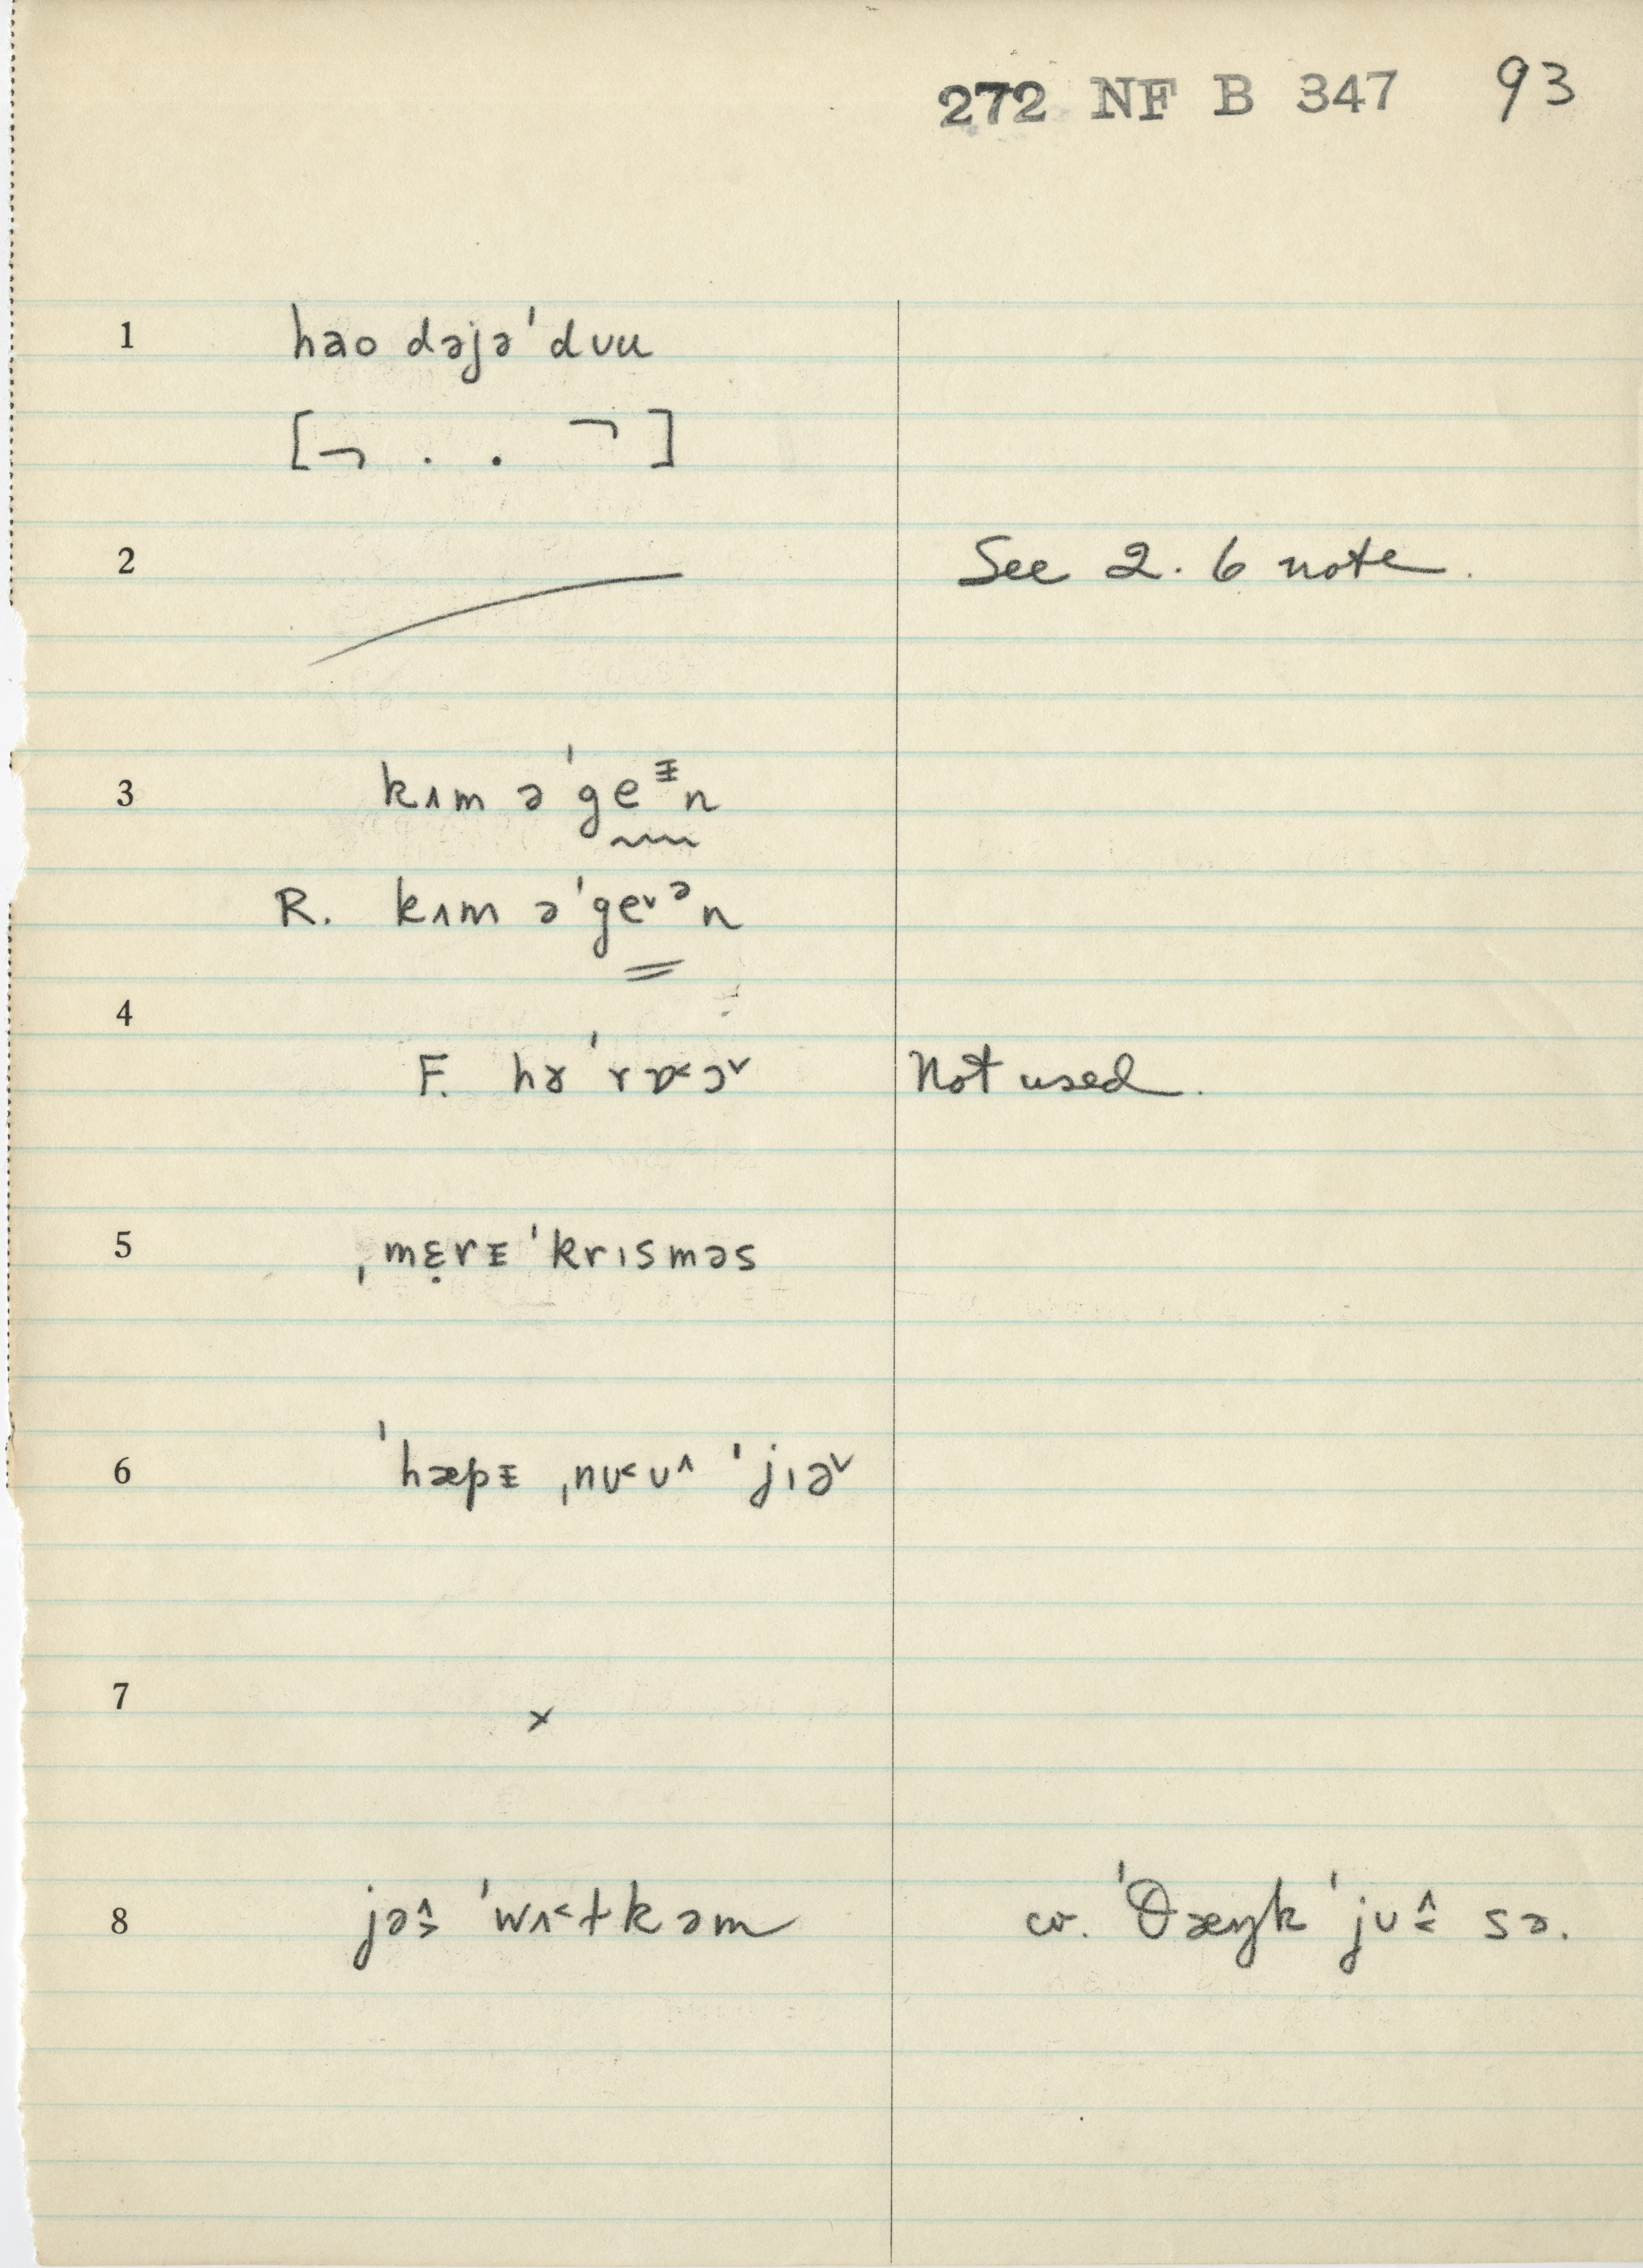 272 NF B 347 93
1 hao dəjə ˈdᴜu
[¬ . . ¬]
2 See 2. 6 note.
3 kʌm əˈgeᵻn
R. kʌm əˈge˅ᵊn
4
F. hɤˈrɒ˂ɔ˅ Not used.
5 ˌmɛ̣rᵻ ˈkrɪsməs
6 ˈhæpᵻ ˌnᴜ˂ᴜ˄ ˈjɪə˅
7 ×
8 jə˄˃ ˈwʌ˂ɫkəm cv. ˈθæŋk ˈjᴜ˄˂ sə.